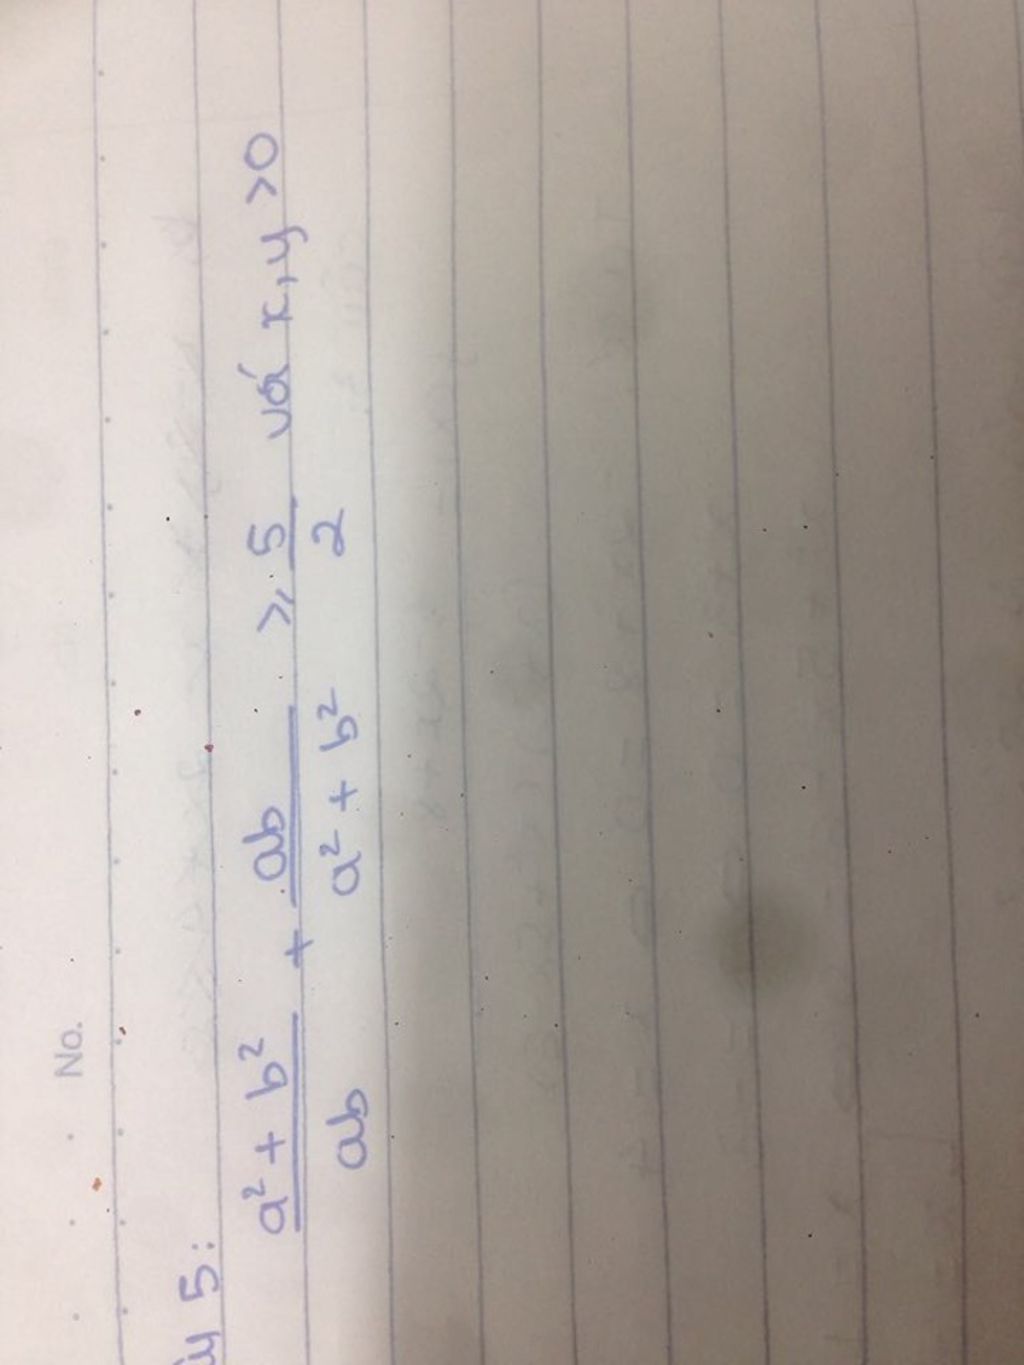 No.
5:
a² + b² / ab + ab / a² + b² ≥ 5 / 2 vói x, y >0